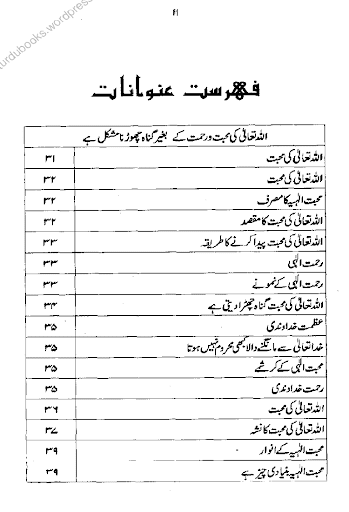 urdubooks.wordpress
۲۱
فہرست عنوانات
اللہ تعالیٰ کی محبت ورحمت کے بغیر گناہ چھوڑنا مشکل ہے
اللہ تعالیٰ کی محبت ۳۱
اللہ تعالیٰ کی محبت ۳۲
محبت الٰہیہ کا مصرف ۳۲
اللہ تعالیٰ کی محبت کا مقصد ۳۲
اللہ تعالیٰ کی محبت پیدا کرنے کا طریقہ ۳۳
رحمت الٰہی ۳۳
رحمت الٰہی کے نمونے ۳۳
اللہ تعالیٰ کی محبت گناہ چھڑا دیتی ہے ۳۴
عظمت خداوندی ۳۵
خدا تعالیٰ سے مانگنے والا کبھی محروم نہیں ہوتا ۳۵
محبت الٰہی کے کرشمے ۳۵
رحمت خداوندی ۳۵
اللہ تعالیٰ کی محبت ۳۶
اللہ تعالیٰ کی محبت کا نشہ ۳۷
محبت الٰہیہ کے انوار ۳۹
محبت الٰہیہ بنیادی چیز ہے ۳۹